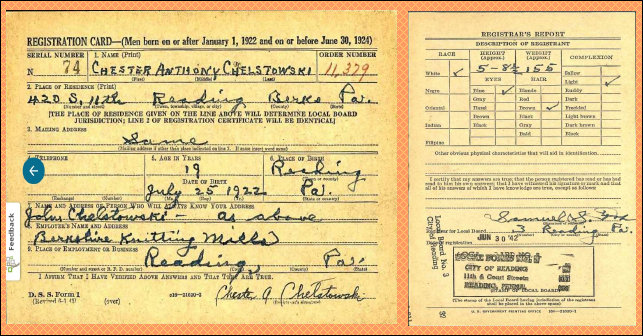 REGISTRATION CARD—(Men born on or after January 1, 1922 and on or before June 30, 1924)
SERIAL NUMBER 1. NAME (Print) ORDER NUMBER
N 74 CHESTER ANTHONY CHELSTOWSKI 11,379
(First) (Middle) (Last)
2. PLACE OF RESIDENCE (Print)
420 S. 11th Reading Berks Pa.
(Number and street) (Town, township, village, or city) (County) (State)
[THE PLACE OF RESIDENCE GIVEN ON THE LINE ABOVE WILL DETERMINE LOCAL BOARD
JURISDICTION; LINE 2 OF REGISTRATION CERTIFICATE WILL BE IDENTICAL]
3. MAILING ADDRESS
Same
[Mailing address if other than place indicated on line 2. If same insert word same]
4. TELEPHONE 5. AGE IN YEARS 6. PLACE OF BIRTH
19 Reading
DATE OF BIRTH
July 25 1922 Pa.
(Mo.) (Day) (Yr.) (State or country)
7. NAME AND ADDRESS OF PERSON WHO WILL ALWAYS KNOW YOUR ADDRESS
John Chelstowski — as above
8. EMPLOYER'S NAME AND ADDRESS
Berkshire Knitting Mills
9. PLACE OF EMPLOYMENT OR BUSINESS
Reading, Pa.
(Number and street or R. F. D. number) (State)
I AFFIRM THAT I HAVE VERIFIED ABOVE ANSWERS AND THAT THEY ARE TRUE.
D. S. S. Form 1 Chester A Chelstowski
(over)
Feedback
REGISTRAR'S REPORT
DESCRIPTION OF REGISTRANT
RACE HEIGHT (Approx.) WEIGHT (Approx.) COMPLEXION
5-8½ 155
White Sallow
EYES HAIR Light
Negro Blue Blonde Ruddy
Gray Red Dark
Oriental Hazel Brown Freckled
Brown Black Light brown
Indian Black Gray Dark brown
Bald Black
Filipino
Other obvious physical characteristics that will aid in identification
I certify that my answers are true; that the person registered has read or has had
read to him his own answers; that I have witnessed his signature or mark and that
all of his answers of which I have knowledge are true, except as follows:
Registrar for Local Board 3 Reading Pa.
JUN 30 '42
Local Board No. 3
City of Reading
LOCAL BOARD NO. 3
CITY OF READING
11th & Court Streets
READING, PENNA.
(STAMP OF LOCAL BOARD)
(The stamp of the Local Board having jurisdiction of the registrant
shall be placed in the above space)
U. S. GOVERNMENT PRINTING OFFICE